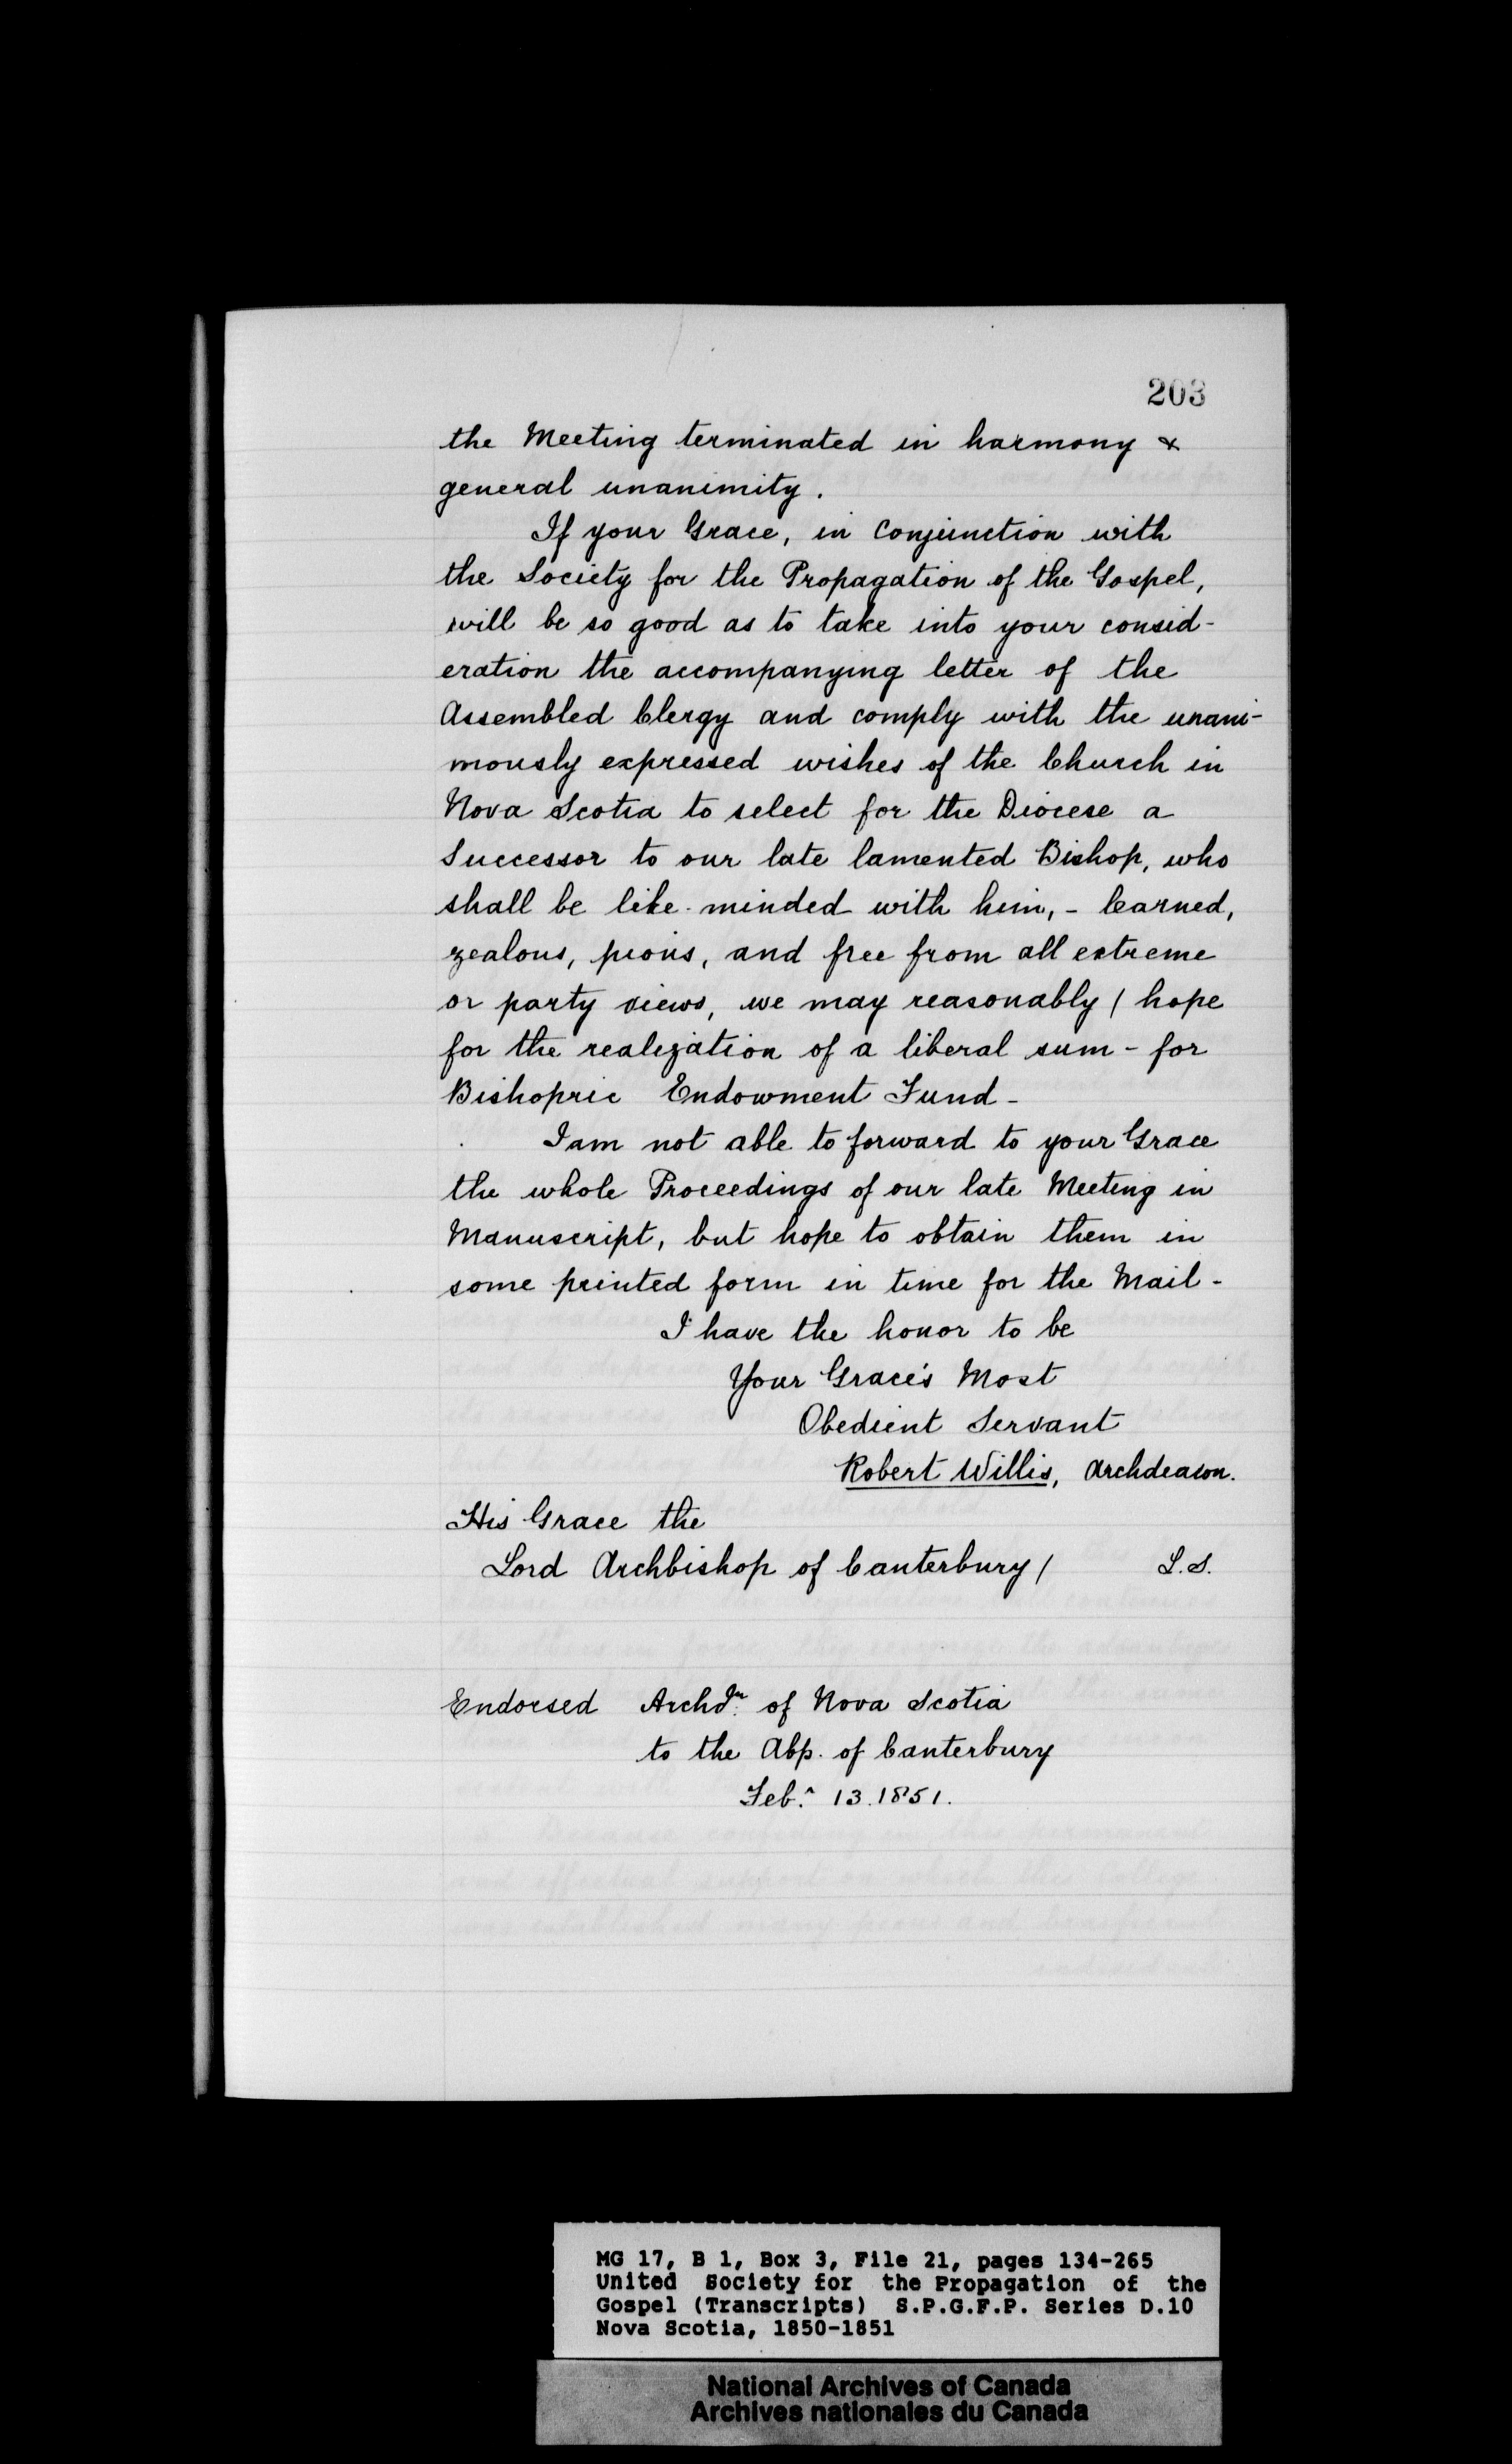 203
the Meeting terminated in harmony &
general unanimity.
If your Grace, in Conjunction with
the Society for the Propagation of the Gospel,
will be so good as to take into your consid-
eration the accompanying letter of the
Assembled Clergy and comply with the unani-
mously expressed wishes of the Church in
Nova Scotia to select for the Diocese a
Successor to our late lamented Bishop, who
shall be like-minded with him, - learned,
zealous, pious, and free from all extreme
or party views, we may reasonably / hope
for the realization of a liberal sum - for
Bishopric Endowment Fund -
I am not able to forward to your Grace
the whole Proceedings of our late Meeting in
Manuscript, but hope to obtain them in
some printed form in time for the Mail -
I have the honor to be
Your Grace's Most
Obedient Servant
Robert Willis, Archdeacon.
His Grace the
Lord Archbishop of Canterbury / L.S.
Endorsed Archdn. of Nova Scotia
to the Abp. of Canterbury
Feb. 13. 1851.
MG 17, B 1, Box 3, File 21, pages 134-265
United Society for the Propagation of the
Gospel (Transcripts) S.P.G.F.P. Series D.10
Nova Scotia, 1850-1851
National Archives of Canada
Archives nationales du Canada